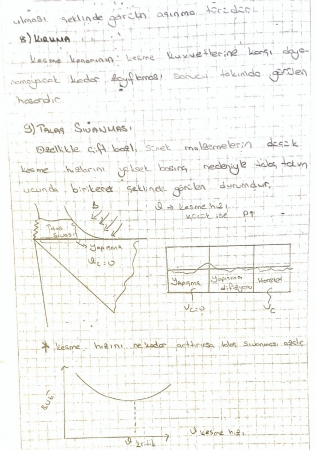 ulması şeklinde görülen aşınma türüdür.
8) KIRILMA
Kesme kenarının kesme kuvvetlerine karşı daya-
namayacak kadar zayıflaması sonucu takımda görülen
hasardır.
9) TALAŞ SIVANMASI
Özellikle çift bağlı, sünek malzemelerin düşük
kesme hızlarını yüksek basınç nedeniyle talaş takım
ucunda birikerek şeklinde görülen durumdur.
ϑ → kesme hızı
küçük ise P↑
Talaş
Sıvası
Yapışma
ϑc=0
Yapışma
Yapışma
difüzyonu
Hareket
Vc=0
Vc
* Kesme hızını ne kadar arttırırsa talaş sıvanması azalır
ϑ kritik
ϑ kesme hızı